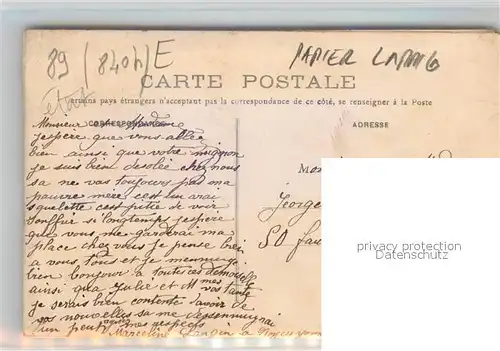 89 (840h) E
PAPIER
état
CARTE POSTALE
certains pays étrangers n'acceptent pas la correspondance de ce côté, se renseigner à la Poste
CORRESPONDANCE
ADRESSE
Monsieur
jespère que vous allée
bien ainsi que votre mignon
je suis bien desolée chez nous
sa ne vas toujours pas ma
pauvre mère cest un vrai
squelette cest pitié de voir
souffrir si longtemps jespère
que vous me garderai ma
place chez vous je pense bien
a vous tous et je mennuie
bien bonjour a toutes ces demoiselle
ainsi qua Julie et Mme
vos tante
je serais bien contente davoir de
vos nouvelles sa me desennuyrai
un peut
mes respects
Marceline
a
Mon
George
50 fau
privacy protection
Datenschutz